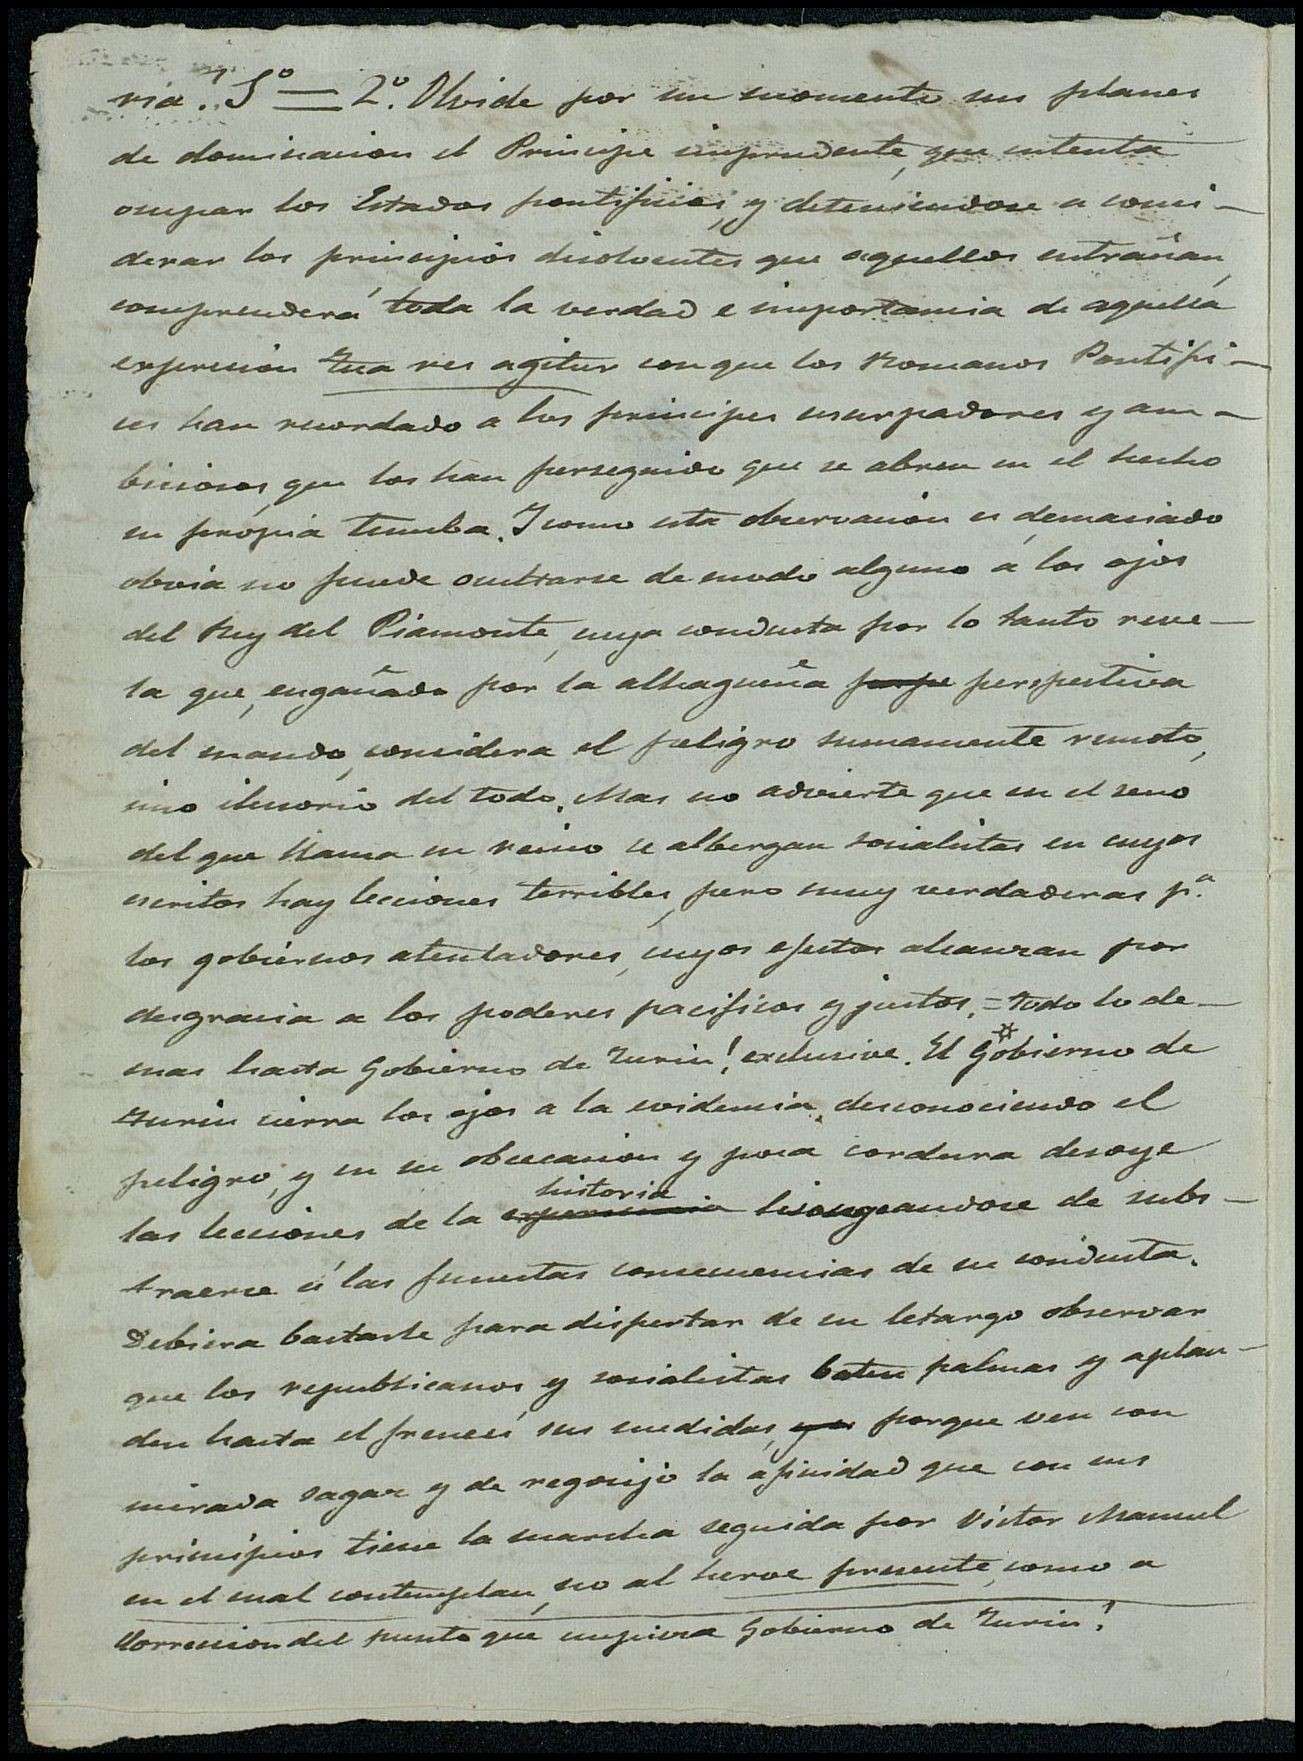 ria. Sº = 2º. Olvide por un momento sus planes
de dominacion el Principe imprudente, que intenta
ocupar los Estados pontificios, y deteniendose a consi-
derar los principios disolventes que aquellos entrañan,
comprenderá toda la verdad e importancia de aquella
expresion tua res agitur con que los Romanos Pontifi-
ces han recordado a los principes usurpadores y am-
biciosos que los han perseguido que se abren en el hecho
su própia tumba. I como esta observacion es demasiado
obvia no puede ocultarse de modo alguno á los ojos
del Rey del Piamonte, cuya conducta por lo tanto reve-
la que, engañado por la alhagueña perpe perspectiva
del mando, considera el peligro sumamente remoto,
sino ilusorio del todo. Mas no advierte que en el seno
del que llama su reino se albergan socialistas en cuyos
escritos hay lecciones terribles, pero muy verdaderas pª.
los gobiernos atentadores, cuyos efectos alcanzan por
desgracia a los poderes pacificos y justos. = todo lo de-
mas hasta Gobierno de Turin! exclusive. El Gobierno de
Turin cierra los ojos a la evidencia, desconociendo el
peligro, y en su obcecacion y poca cordura desoye
las lecciones de la experiencia historia lisongeandose de subs-
traerse á las funestas consecuencias de su conducta.
Debiera bastarle para dispertar de su letargo observar
que los republicanos y socialistas baten palmas y aplau-
den hasta el frenesí sus medidas, porque ven con
mirada sagaz y de regocijo la afinidad que con sus
principios tiene la marcha seguida por Victor Manuel
en el cual contemplan, no al heroe presente, como a
Correccion del punto que empieza Gobierno de Turin!